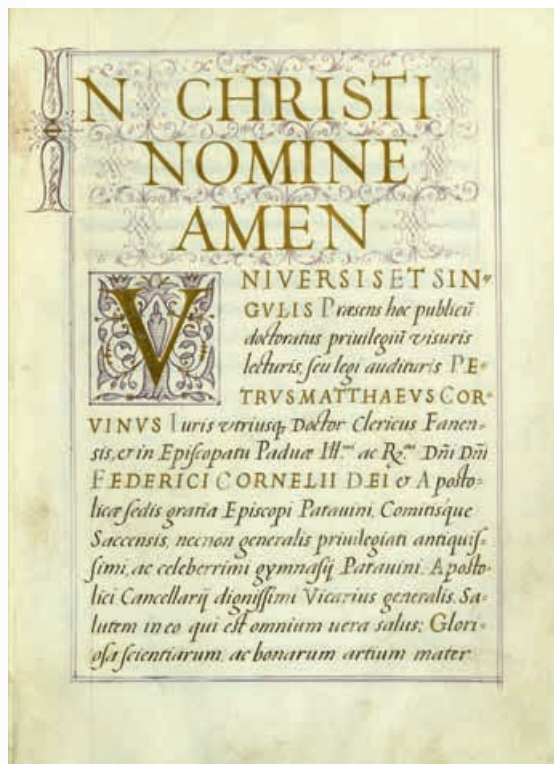 IN CHRISTI
NOMINE
AMEN
VNIVERSIS ET SIN=
GVLIS Præsens hoc publicũ
doctoratus priuilegiũ visuris
lecturis, seu legi audituris PE=
TRVS MATTHAEVS COR=
VINVS Iuris vtriusq; Doctor Clericus Fanen=
sis, & in Episcopatu Paduæ Ill.mi ac R.mi Dñi Dñi
FEDERICI CORNELII DEI & Aposto=
licæ sedis gratia Episcopi Patauini, Comitisque
Saccensis, necnon generalis priuilegiati antiquis=
simi, ac celeberrimi gymnasij Patauini, Aposto=
lici Cancellarij dignissimi Vicarius generalis, Sa=
lutem in eo qui est omnium uera salus; Glori=
osa scientiarum, ac bonarum artium mater